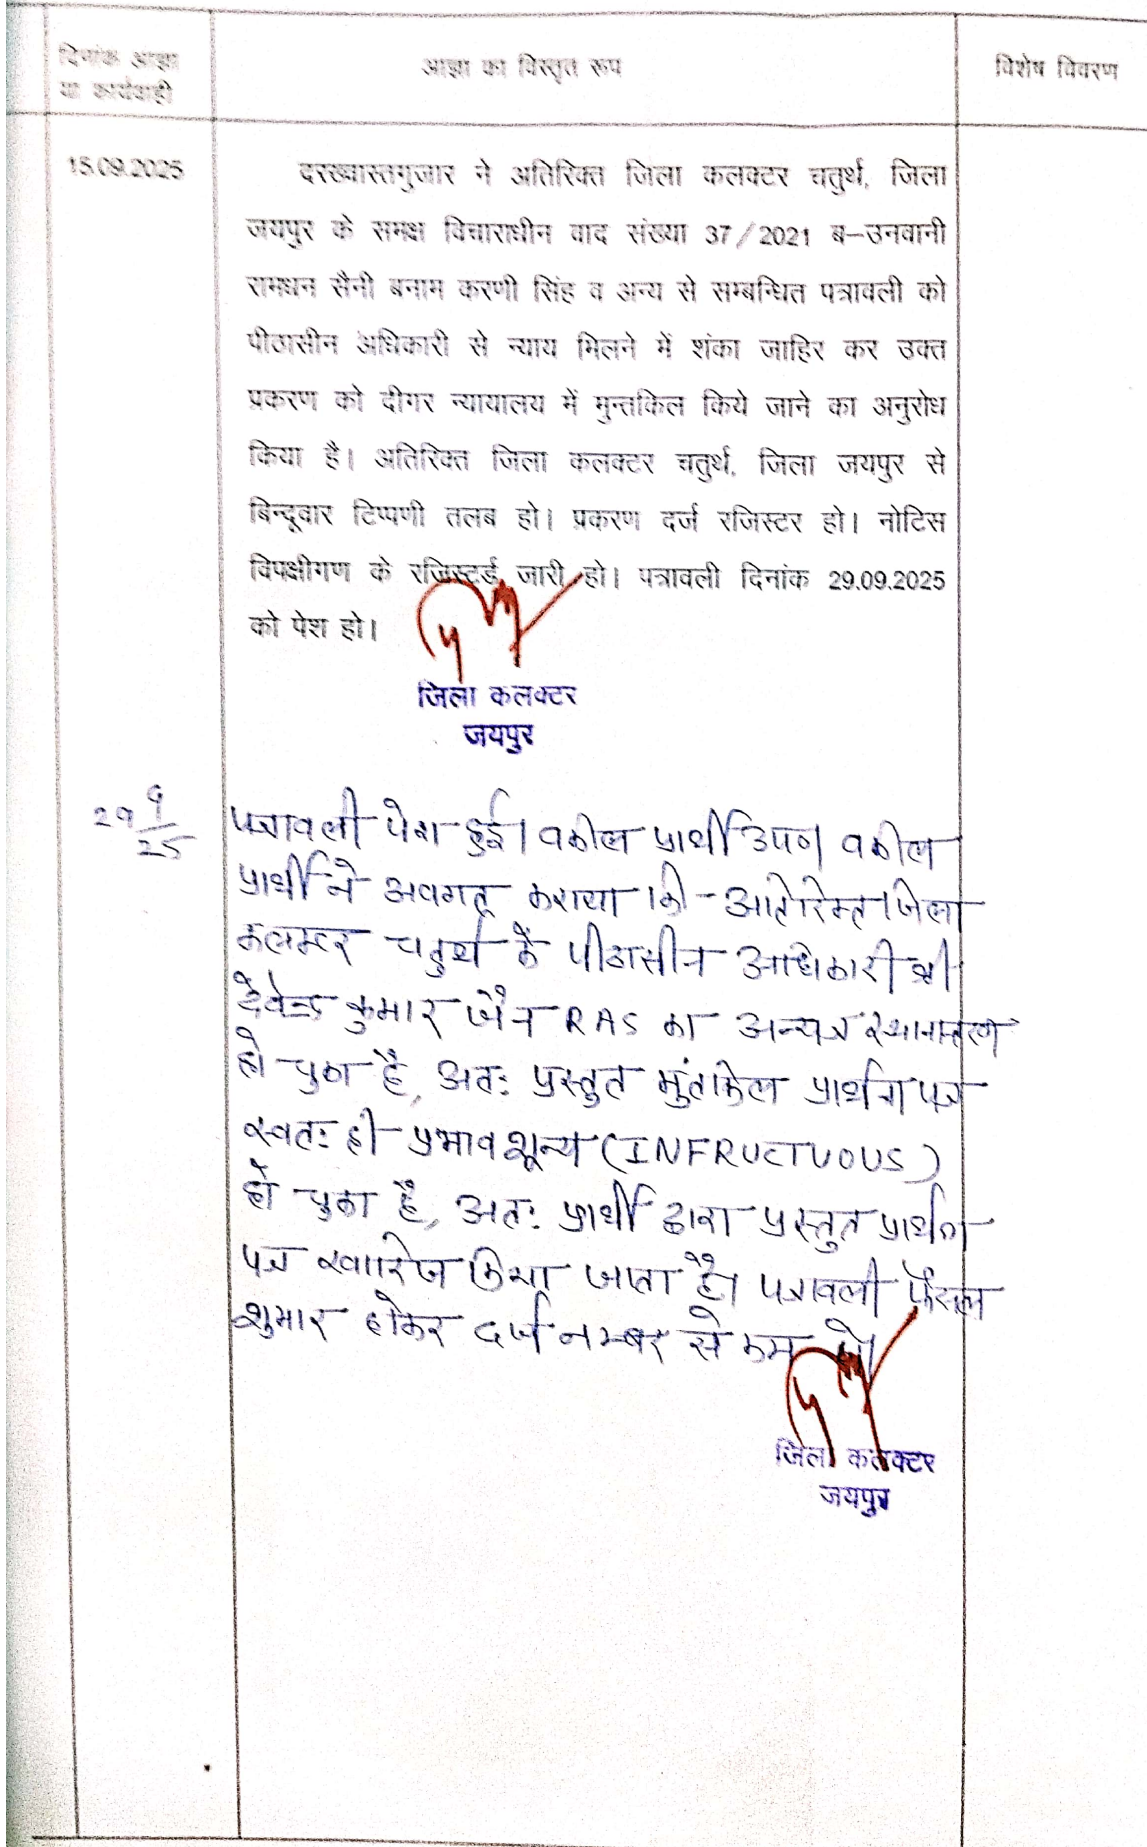 दिनांक आज्ञा
या कार्यवाही
आज्ञा का विस्तृत रूप
विशेष विवरण
15.09.2025
दरख्वास्तगुजार ने अतिरिक्त जिला कलक्टर चतुर्थ, जिला
जयपुर के समक्ष विचाराधीन वाद संख्या 37/2021 ब-उनवानी
रामधन सैनी बनाम करणी सिंह व अन्य से सम्बन्धित पत्रावली को
पीठासीन अधिकारी से न्याय मिलने में शंका जाहिर कर उक्त
प्रकरण को दीगर न्यायालय में मुन्तकिल किये जाने का अनुरोध
किया है। अतिरिक्त जिला कलक्टर चतुर्थ, जिला जयपुर से
बिन्दूवार टिप्पणी तलब हो। प्रकरण दर्ज रजिस्टर हो। नोटिस
विपक्षीगण के रजिस्टर्ड जारी हो। पत्रावली दिनांक 29.09.2025
को पेश हो।
जिला कलक्टर
जयपुर
29 9/25
पत्रावली पेश हुई। वकील प्रार्थी उप०। वकील
प्रार्थी ने अवगत कराया कि अतिरिक्त जिला
कलक्टर चतुर्थ के पीठासीन अधिकारी श्री
देवेन्द्र कुमार जैन RAS का अन्यत्र स्थानान्तरण
हो चुका है, अतः प्रस्तुत मुंतकिल प्रार्थना पत्र
स्वतः ही प्रभाव शून्य (INFRUCTUOUS)
हो चुका है, अतः प्रार्थी द्वारा प्रस्तुत प्रार्थना
पत्र खारिज किया जाता है। पत्रावली फैसल
शुमार होकर दर्ज नम्बर से कम हो।
जिला कलक्टर
जयपुर